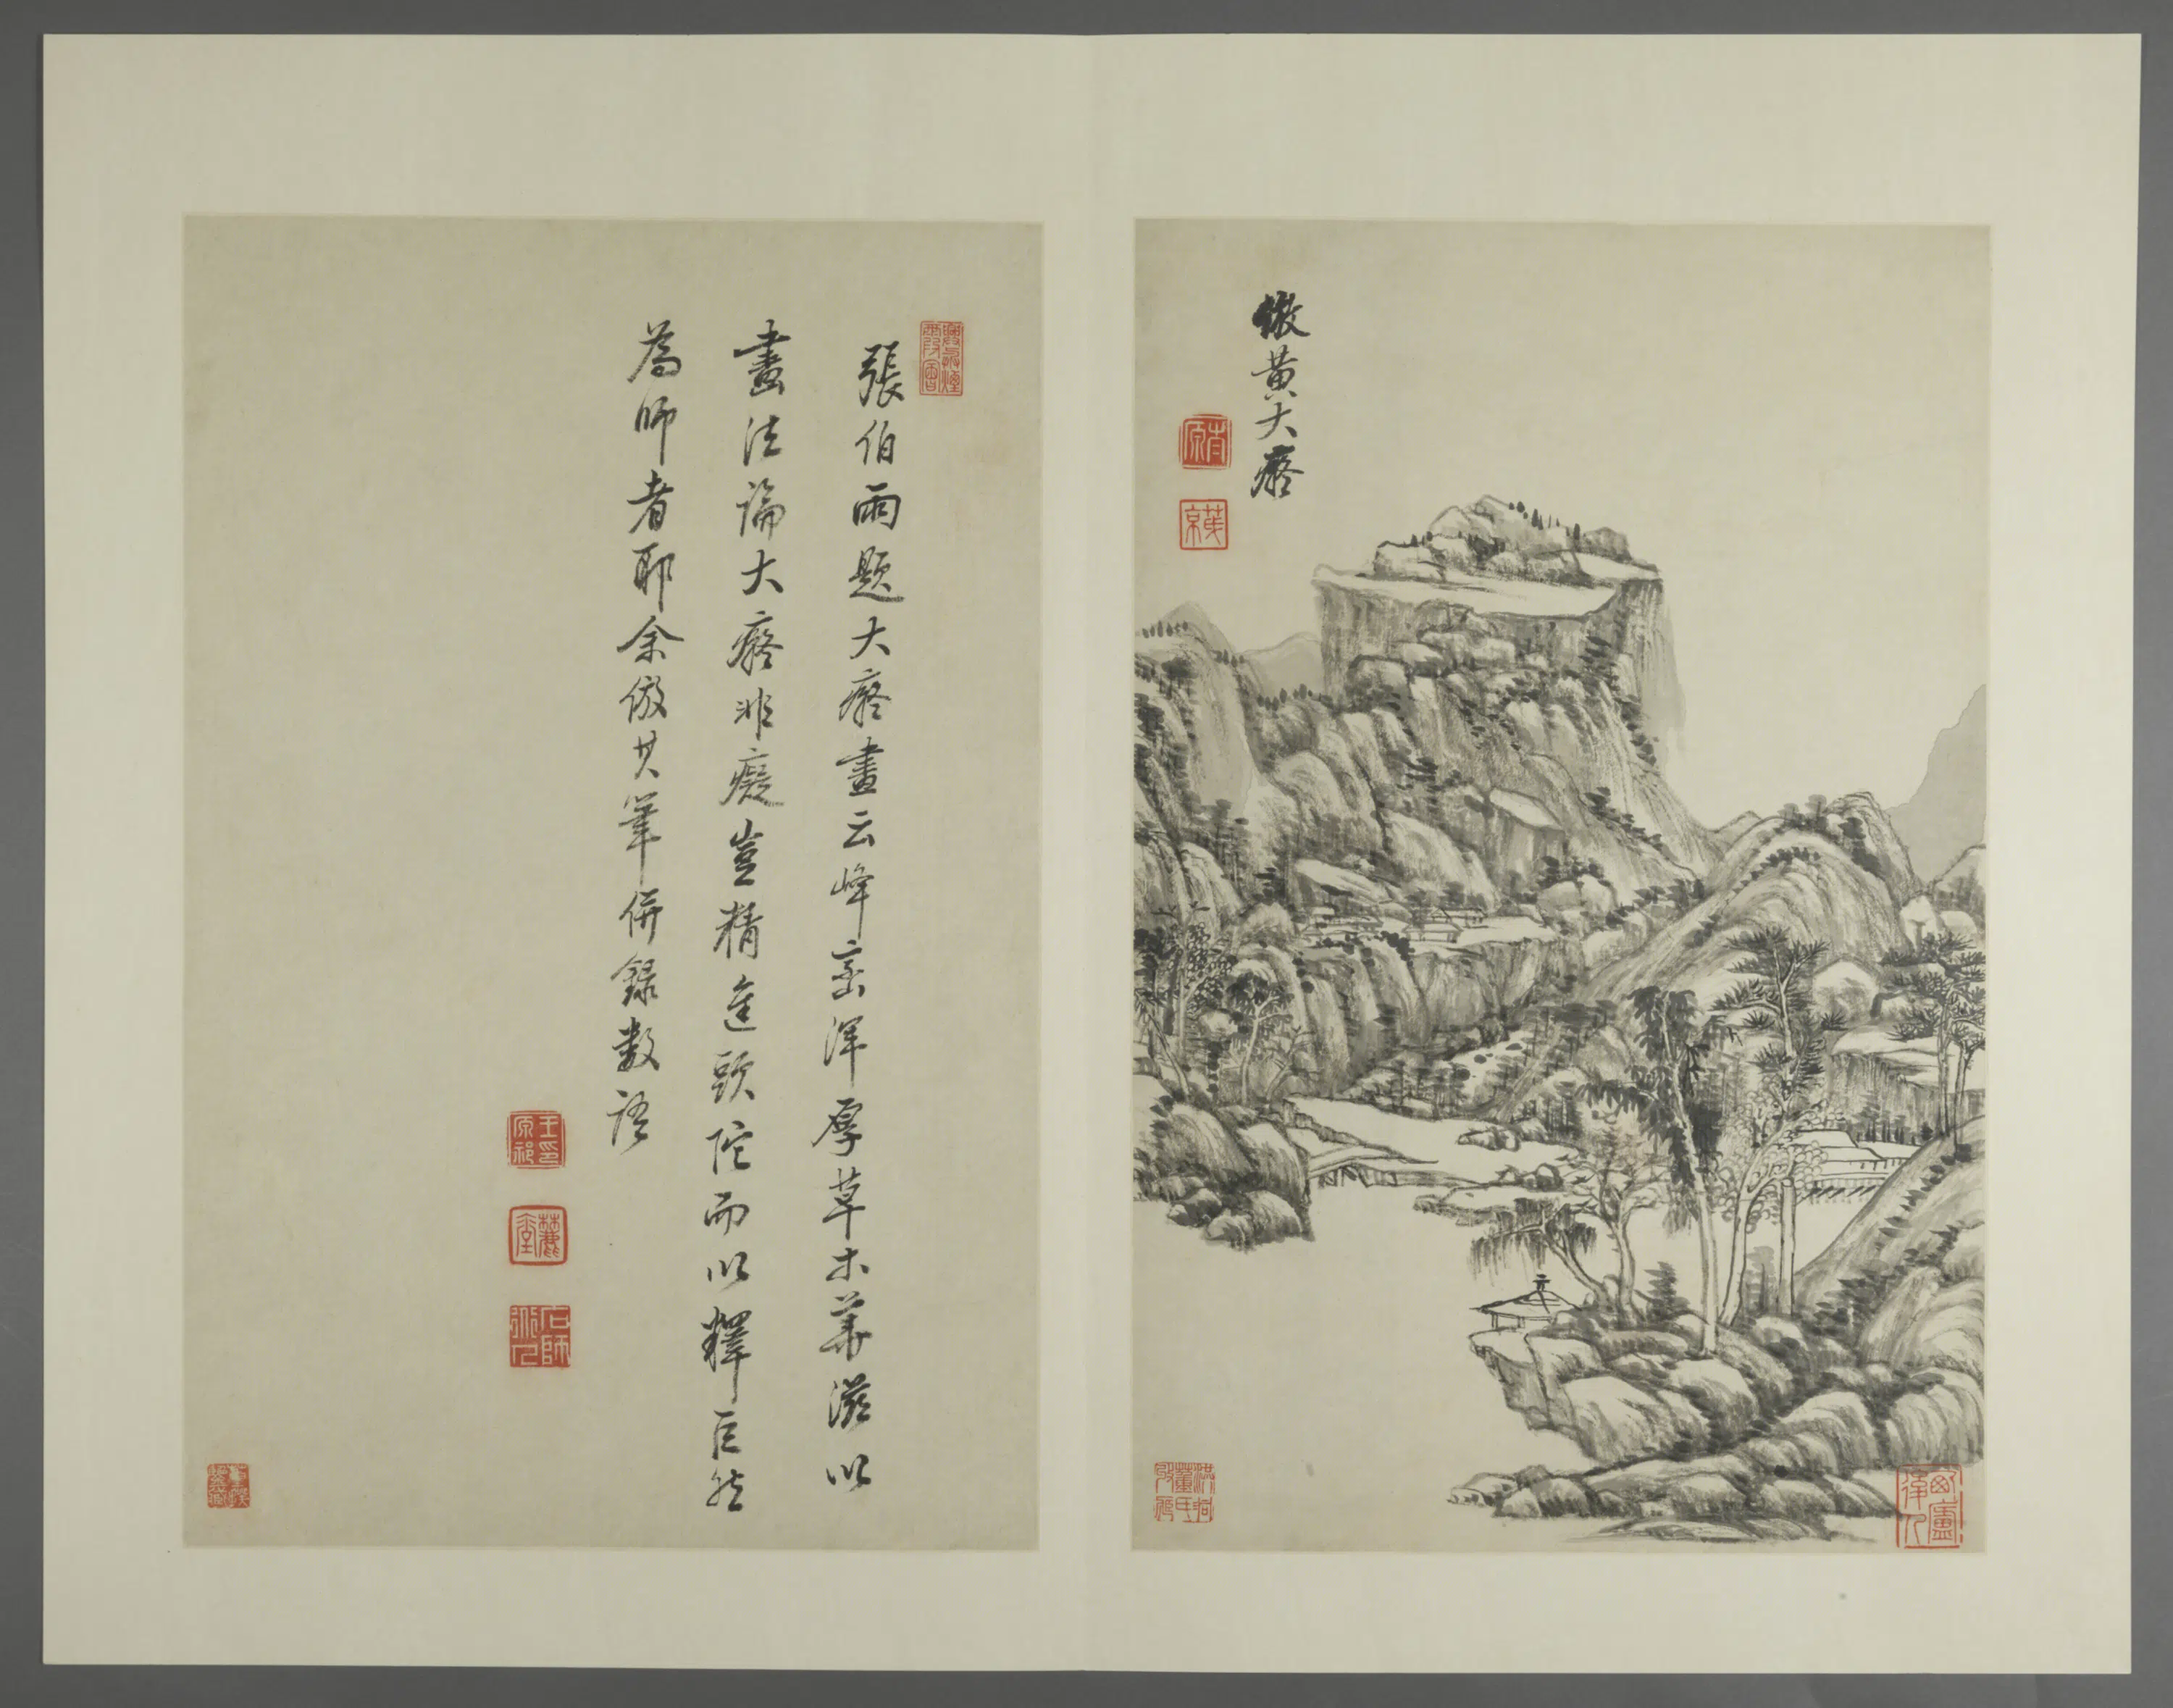 倣黄大癡
茂京
張伯雨題大癡畫云峰巒渾厚草木華滋以
畫法論大癡非癡豈精進頭陀而以釋巨然
為師者耶余倣其筆併録數語
王原祁印
麓臺
石師道人